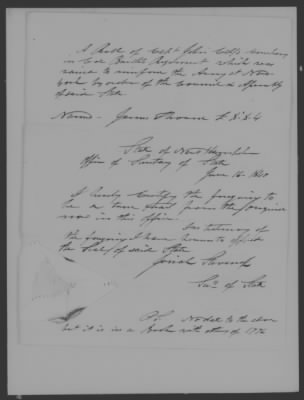 A Roll of Capt John Company
in Col Regiment which was
raised to reinforce the Army at New
York by order of the Council & Assembly
of said State
Names - James
State of New Hampshire
Office of Secretary of State
June 16 1840
I hereby Certify the foregoing to
be a true from the original
now in this office.
In testimony of
the foregoing I have hereunto affixed
the Seal of said State
Josiah Stevens Jr
Secy of State
P.S. No date to the above
but it is in a Book with others of 1776